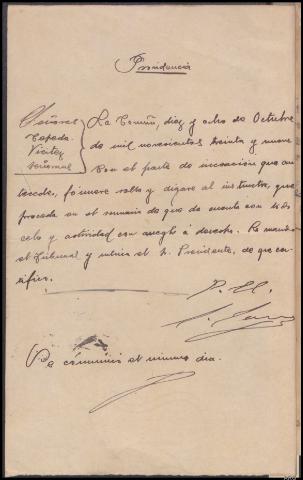 Providencia
Señores
Cepeda
Vicitez
Señormal
La Coruña, diez y ocho de Octubre
de mil novecientos treinta y nueve
Con el parte de incoación que an
tecede, fórmese rollo y dígase al instructor, que
proceda en el sumario de que da cuenta con todo
celo y actividad con arreglo a derecho. Lo mandó
el Tribunal y rubrica el Sr. Presidente, de que cer
tifico.
Se comunicó el mismo día.